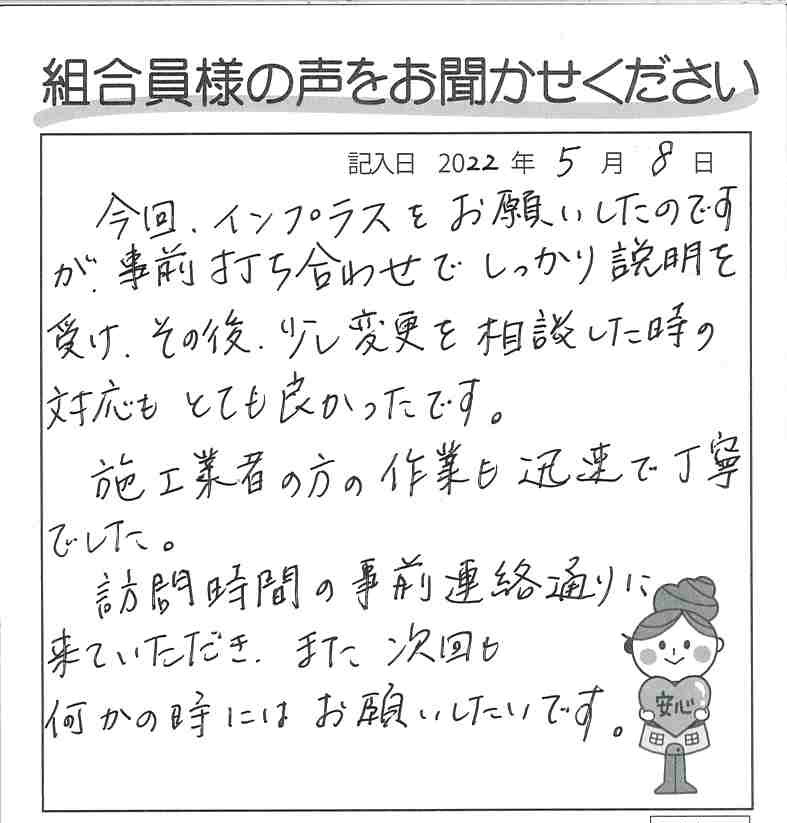 組合員様の声をお聞かせください
記入日 2022 年 5 月 8 日
今回、インプラスをお願いしたのです
が、事前打ち合わせでしっかり説明を
受け、その後、少し変更を相談した時の
対応もとても良かったです。
施工業者の方の作業も迅速で丁寧
でした。
訪問時間の事前連絡通りに
来ていただき、また次回も
何かの時にはお願いしたいです。
安心